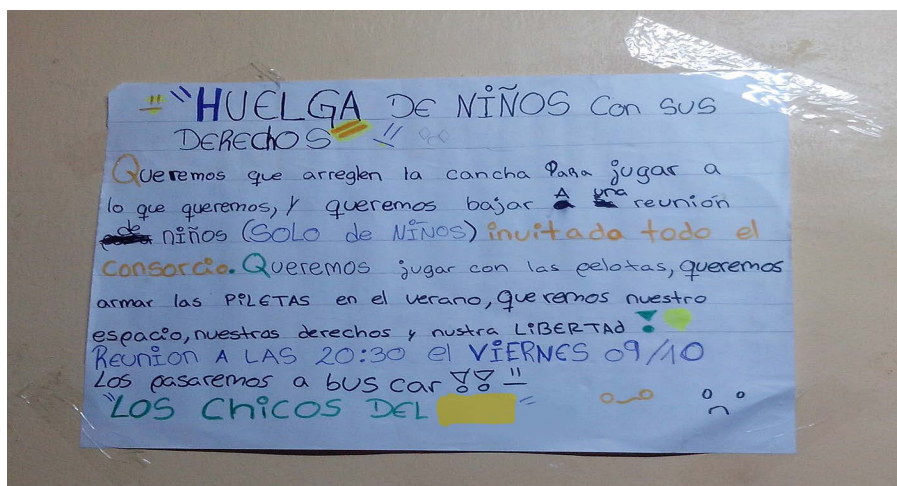 "HUELGA DE NIÑOS Con SUS
DERECHOS"
Queremos que arreglen la cancha PARA jugar a
lo que queremos, y queremos bajar A una reunión
de niños (SOLO de NIÑOS) invitado todo el
consorcio. Queremos jugar con las pelotas, queremos
armar las PILETAS en el verano, queremos nuestro
espacio, nuestros derechos y nustra LIBERTAD!
Reunion A LAS 20:30 el VIERNES 09/10
Los pasaremos a buscar!!
"LOS CHICOS DEL